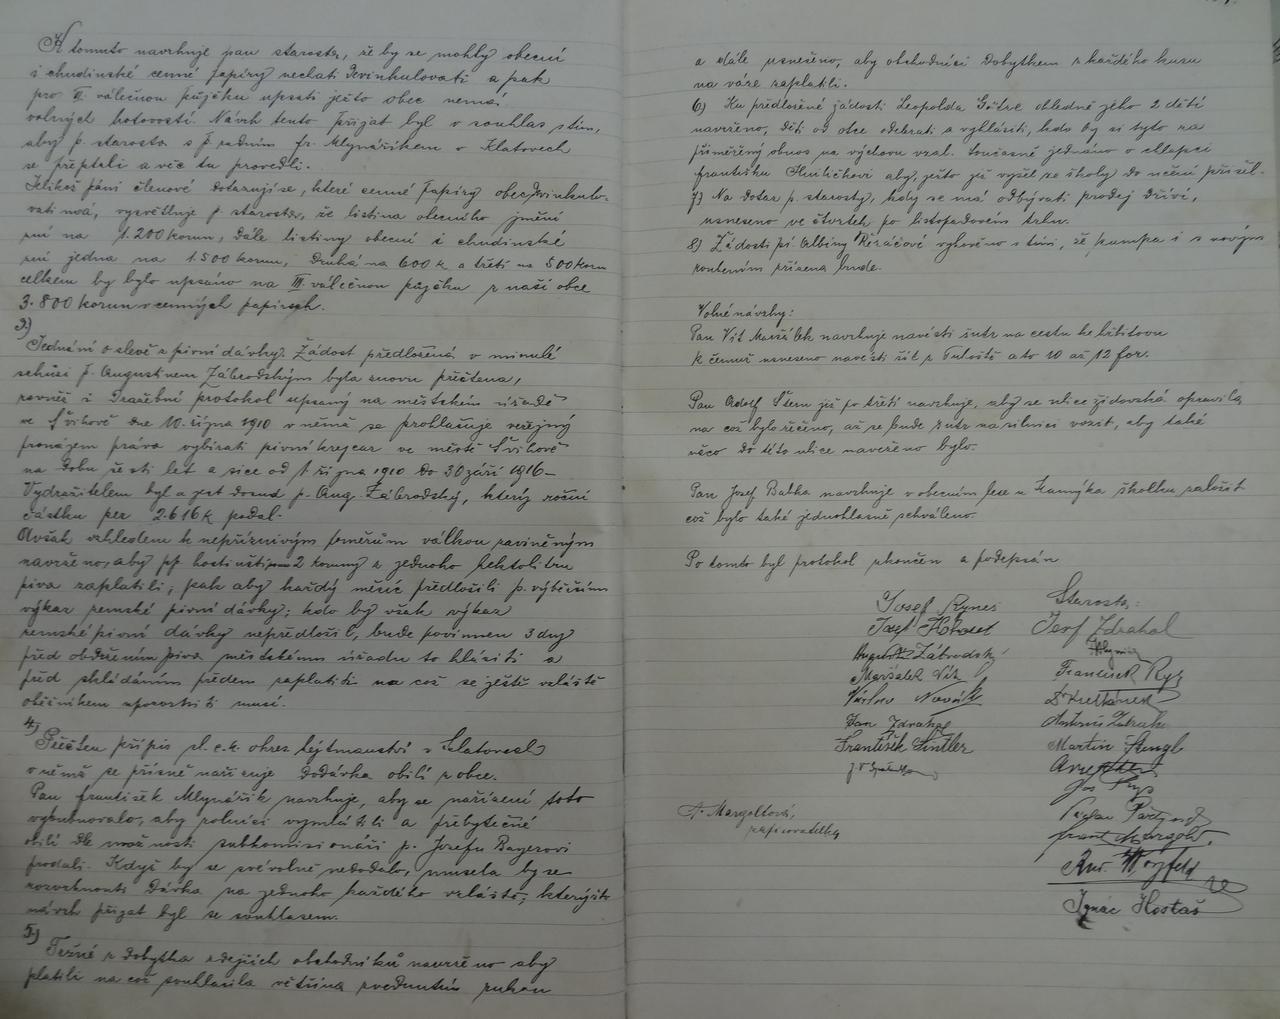 K tomuto navrhuje pan starosta, že by se mohly obecní
i chudinské cenné papíry nechati Devinkulovati a pak
pro III. válečnou půjčku upsati ježto obec nemá
volných hotovostí. Návrh tento přijat byl v souhlas s tím,
aby p. starosta s p. radním fr. Mlynáříkem v Klatovech
se přeptali a věc tu provedli.
Jelikož páni členové dotazují se, které cenné papíry obec Devinkulo-
vati má, vysvětluje p. starosta, že listina obecního jmění
zní na 1.200 korun, dále listiny obecní i chudinské
zní jedna na 1500 korun, druhá na 600 k a třetí na 500 korun
celkem by bylo upsáno na III. válečnou půjčku z naší obce
3.800 korun v cenných papírech.
3.)
Jednání o slevě z pivní dávky. Žádost předložená v minulé
schůzi p. Augustinem Zábrodským byla znovu přečtena,
rovněž i Dražební protokol upsaný na městském úřadě
ve Švihově dne 10. října 1910 v němž se prohlašuje veřejný
pronájem práva vybírati pivní krejcar ve městě Švihově
na dobu šesti let a sice od 1 října 1910 do 30 září 1916 –
Vydražitelem byl a jest dosud p. Aug. Zábrodský, který roční
částku per 2.616 k podal.
Avšak vzhledem k nepříznivým poměrům válkou zaviněným
navrženo, aby pp. hostinští jenom 2 koruny z jednoho hektolitru
piva zaplatili, pak aby každý měsíc předložili p. výběrčím
výkaz zemské pivní dávky; kdo by však výkaz
zemské pivní dávky nepředložil, bude povinnen 3 dny
před obdržením piva městskému úřadu to hlásiti a
před skládáním předem zaplatiti na což se ještě zvláště
oběžníkem upozorniti musí.
4.)
Přečten přípis sl. c. k. okres. hejtmanství v Klatovech
v němž se přísně nařizuje dodávka obilí z obce.
Pan František Mlynářík navrhuje, aby se nařízení toto
vybubnovalo, aby rolníci vymlátili a přebytečné
obilí dle možnosti subkomisionáři p. Josefu Bayerovi
prodali. Když by se svévolně nedodalo, musela by se
rozvrhnouti dávka na jednoho každého zvláště, kterýžto
návrh přijat byl se souhlasem.
5.)
Tržné z dobytka zdejších obchodníků navrženo aby
platili na což souhlasila většina zvednutím rukou
a dále usneseno, aby obchodníci dobytkem z každého kusu
na váze zaplatili.
6.) Ku předložené žádosti Leopolda ohledně jeho 2 dětí
navrženo, děti od otce odebrati a vyhlásiti, kdo by si tyto za
přiměřený obnos na výchovu vzal. Současně jednáno o chlapci
Františku aby, ježto již vyšel ze školy do učení přišel.
7.) Na dotaz p. starosty, kdy se má odbývati prodej dříví,
usneseno ve čtvrtek po listopadovém trhu.
8.) Žádosti pí Albiny vyhověno s tím, že pumpa i s novým
roubením zřízena bude.
Volné návrhy:
Pan Vít Maršálek navrhuje navésti štěr na cestu ke hřbitovu
k čemuž usneseno navésti žít z a to 10 až 12 for.
Pan Adolf Štern již po třetí navrhuje, aby se ulice židovská opravila,
na což bylo řečeno, až se bude na silnici vozit, aby také
něco do této ulice navezeno bylo.
Pan Josef Babka navrhuje v obecním lese u Kamýka školku založit
což bylo také jednohlasně schváleno.
Po tomto byl protokol skončen a podepsán
Starosta:
Josef Rynes
Josef Zdrahal
Augustin Zábrodský
František Ryz
Maršálek Vít
Václav Novák
Jan Zdrahal
Antonín Zdrahal
František Sintler
Martin Štengl
A. Margoltová,
zapisovatelka
Ignác Hostaš